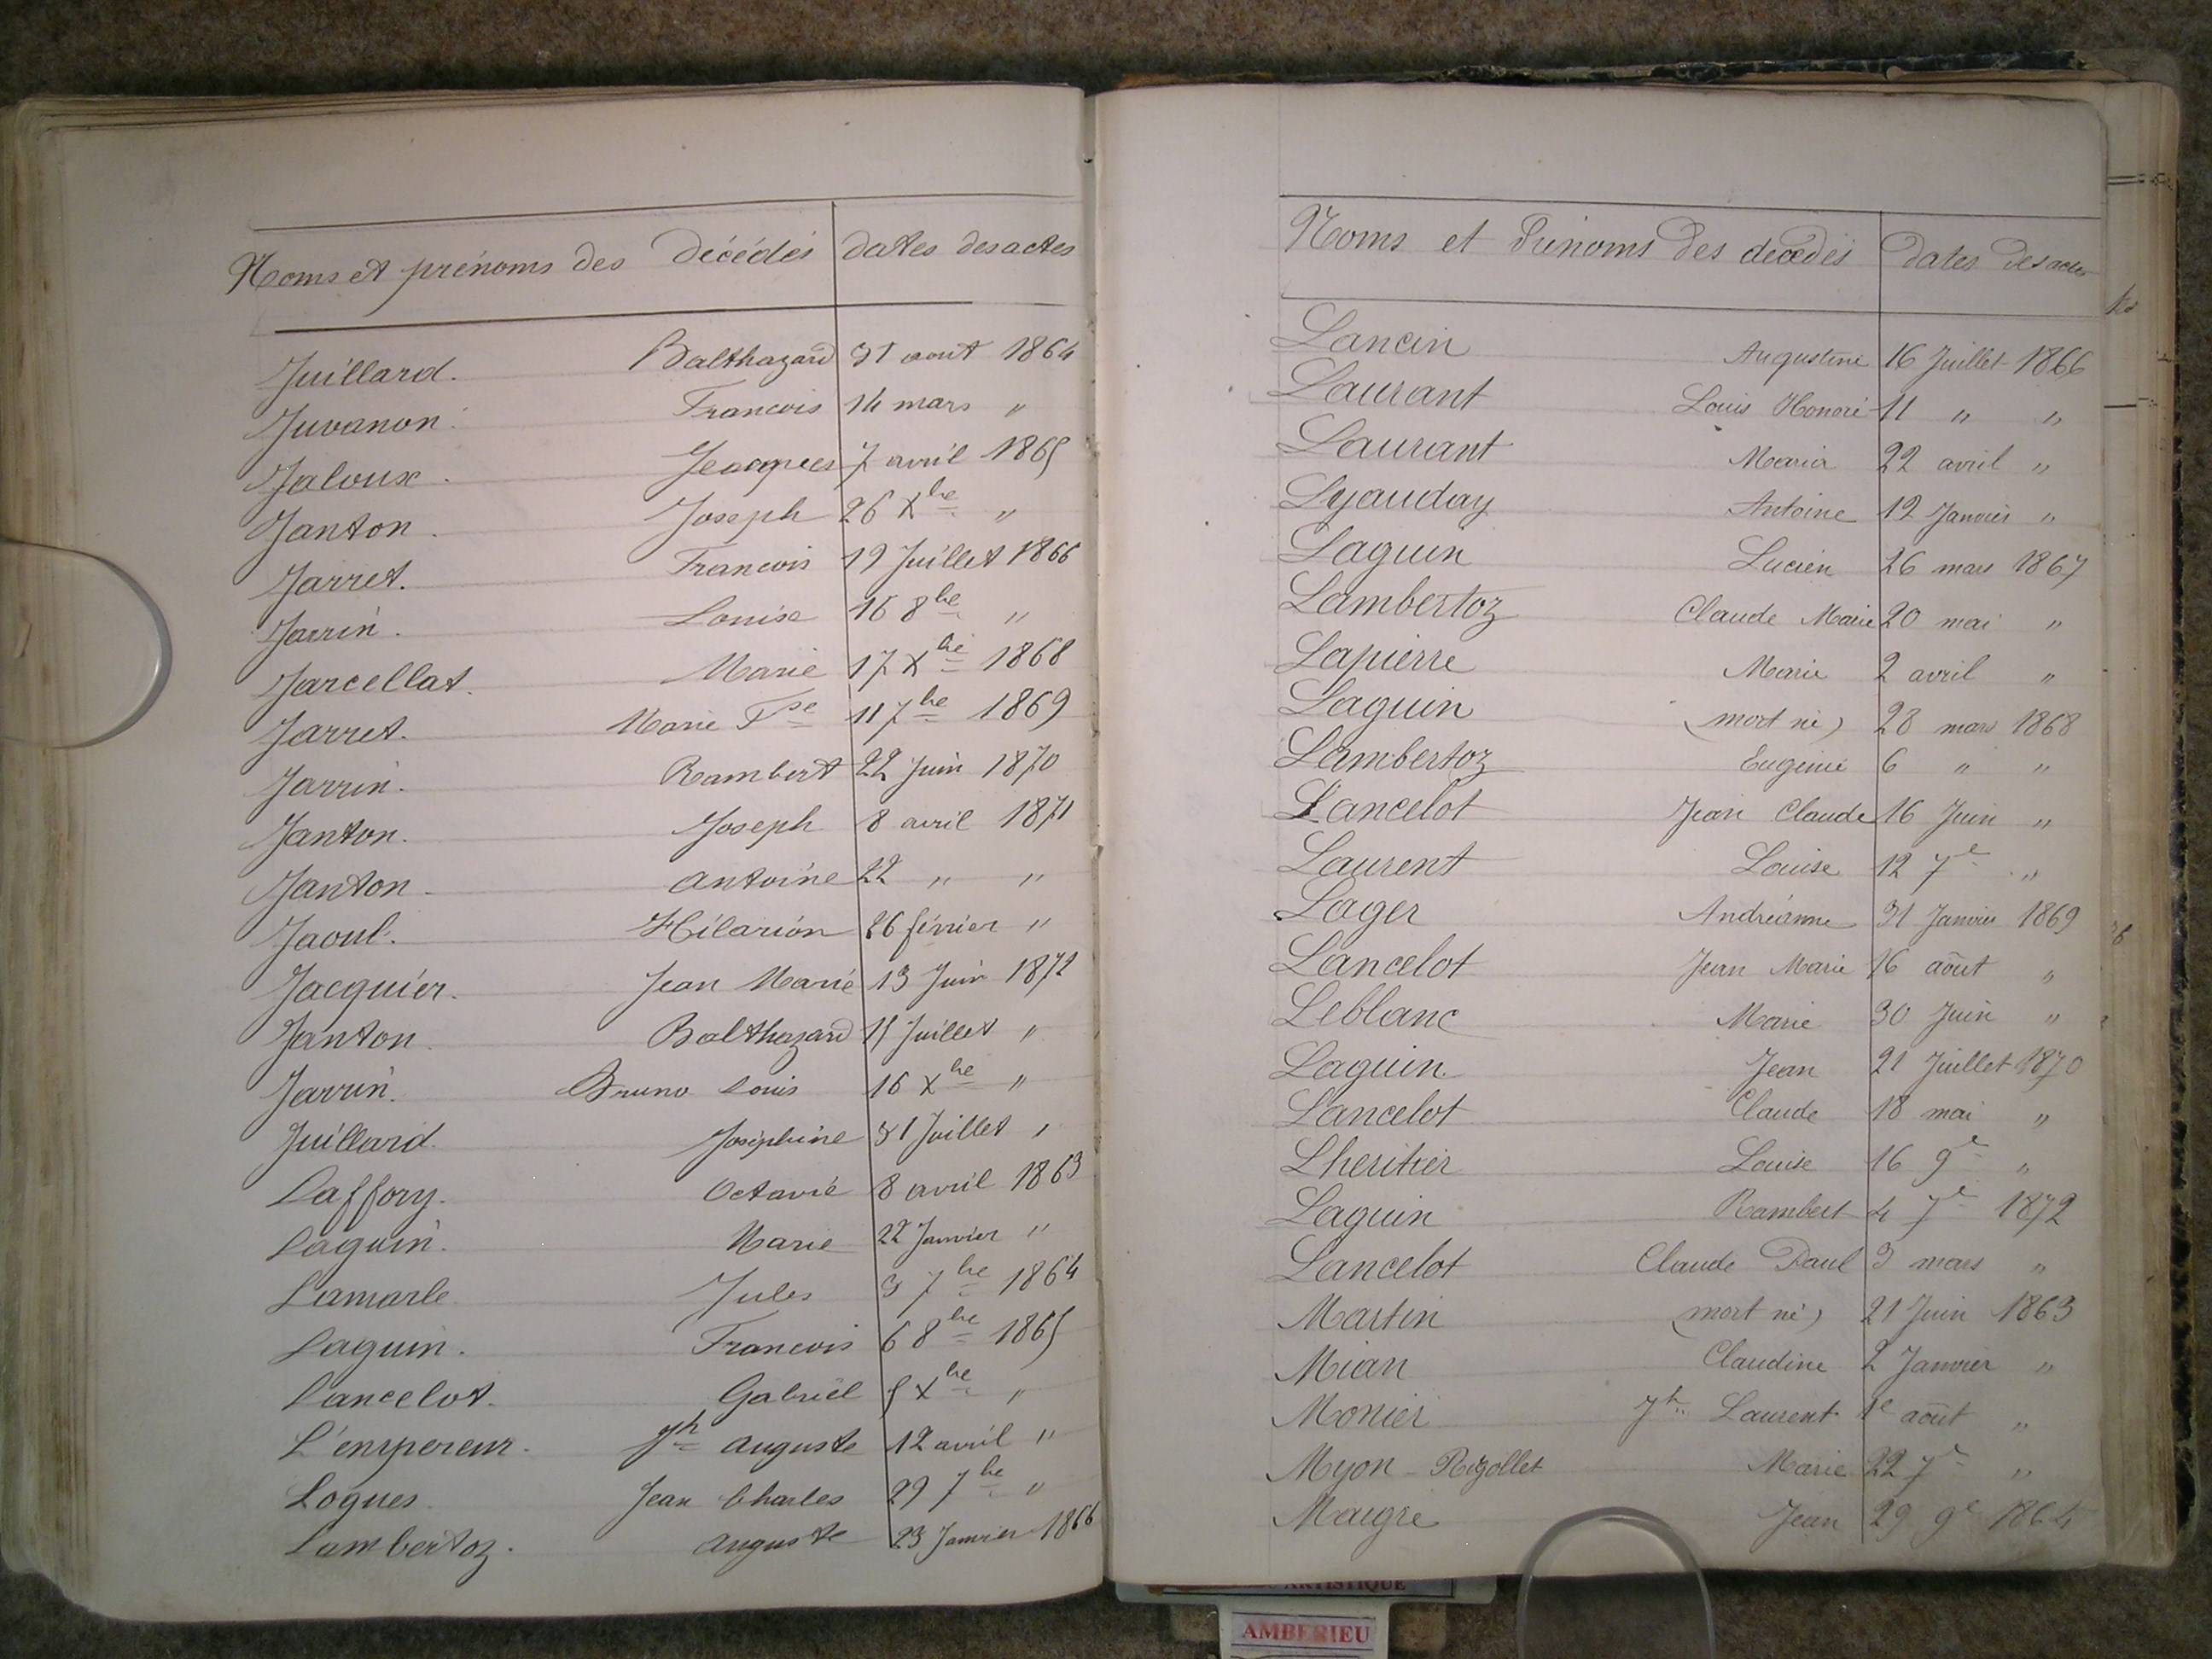 Noms et prénoms des décédés dates des actes
Juillard. Balthazard 31 aout 1864
Juvanon. Francois 14 mars "
Jaloux. Jeacques 7 avril 1865
Janton. Joseph 26 Xbre "
Jarret. Francois 19 Juillet 1866
Jarrin. Louise 16 8bre "
Jarcellat. Marie 17 Xbre 1868
Jarret. Marie Fse 11 7bre 1869
Jarrin. Rambert 22 Juin 1870
Janton. Joseph 8 avril 1871
Janton. antoine 22 " "
Jaoul. Hilarion 26 février "
Jacquier. Jean Marie 13 Juin 1872
Janton. Balthazard 15 Juillet "
Jarrin. Bruno Louis 16 Xbre "
Juillard. Joséphine 31 Juillet "
Laffory. Octavie 8 avril 1863
Laguin. Marie 22 Janvier "
Lamarle Jules 3 7bre 1864
Laguin. Francois 6 8bre 1865
Lancelot. Gabriel 5 Xbre "
L'empereur. Jh auguste 12 avril "
Logues. Jean Charles 29 7bre "
Lambertoz. auguste 23 Janvier 1866
Noms et Prénoms des decedés Dates des actes
Lancin Augustine 16 Juillet 1866
Laurant Louis Honoré 11 " "
Laurant Maria 22 avril "
Lyauday Antoine 12 Janvier "
Laguin Lucien 26 mars 1867
Lambertoz Claude Marie 20 mai "
Lapierre Marie 2 avril "
Laguin (mort né) 28 mars 1868
Lambertoz Eugénie 6 " "
Lancelot Jean Claude 16 Juin "
Laurent Louise 12 7e "
Lager Andréanne 31 Janvier 1869
Lancelot Jean Marie 16 août "
Leblanc Marie 30 Juin "
Laguin. Jean 21 Juillet 1870
Lancelot Claude 18 mai "
Lheritier Louise 16 9e "
Laguin Rambert 4 7e 1872
Lancelot Claude Paul 3 mars "
Martin (mort né) 21 Juin 1863
Mian Claudine 2 Janvier "
Monier Jh Laurent 1e août "
Myon-Rigollet Marie 22 7e "
Maigre Jean 29 9e 1864
ARTISTIQUE
AMBERIEU